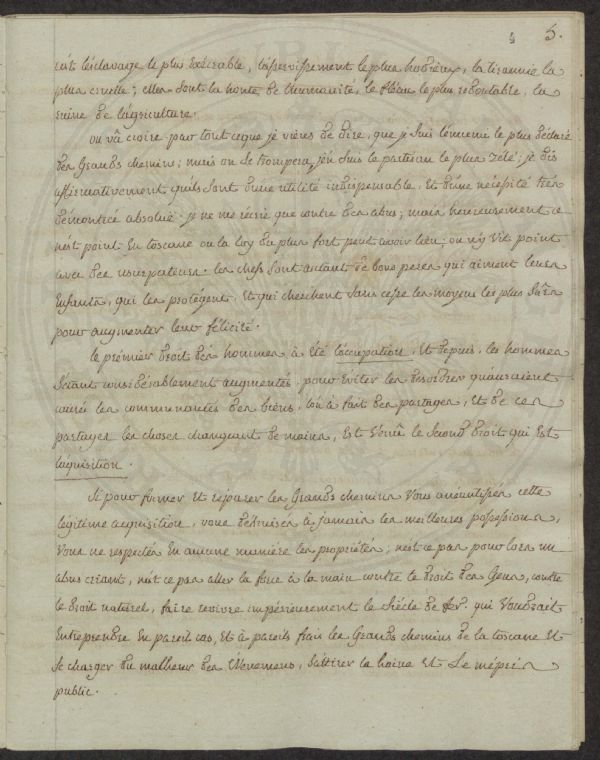 5.
cut l'esclavage le plus exécrable, l'asservissement le plus hodieux, la tirannie la
plus cruelle; elles sont la honte de l'humanité, le fléau le plus redoutable, la
ruine de l'agriculture.
on va croire par tout ceque je viens de dire, que je suis l'ennemi le plus déclaré
des Grands chemins; mais on se trompera, j'en suis le partisan le plus zélé: je dis
affirmativement quils sont d'une utilité indispensable, Et d'une nécéssité très
démontrée absolue: je ne me récrie que contre des abus; mais heureusement ce
n'est point En toscane ou la loy du plus fort peut avoir lieu; on n'y vit point
avec des usurpateurs. les chefs sont autant de bons peres qui aiment leurs
Enfants, qui les protégent, Et qui cherchent sans cesse les moyens les plus surs
pour augmenter leur félicité.
le prémier droit des hommes à été l'occupation, Et depuis, les hommes
s'étant considérablement augmentés, pour éviter les desordres qu'auraient
causés les communautés des biens, on à fait des partages, Et de ces
partages les choses changeant de mains, Est venüe le second droit qui Est
l'aquisition.
Si pour former Et réparer les Grands chemins vous anéantissés cette
légitime aquisition, vous détruisés à jamais les meilleures possessions,
vous ne respectés En aucune manière les propriétés; n'est ce pas pour lors un
abus criant, n'est ce pas aller la force à la main contre le droit des Gens, contre
le droit naturel, faire revivre impérieusement le siécle de fer. qui voudrait
Entreprendre En pareil cas, Et à pareils frais les Grands chemins de la toscane Et
se charger du malheur des Evenemens, s'attirer la haine Et le mépris
public.